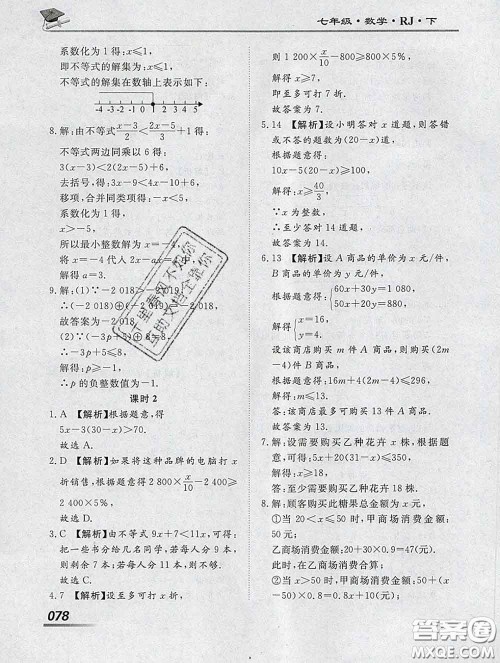 七年级·数学·RJ·下
系数化为1得:x≤1,
即不等式的解集为:x≤1,
不等式的解集在数轴上表示为:
-5 -4 -3 -2 -1 0 1 2 3 4 5
8.解:由不等式(x-3)/2<(2x-5)/3+1得:
不等式两边同乘以6得:
3(x-3)<2(2x-5)+6
去括号,得:3x-9<4x-10+6,
移项,合并同类项得:-x<5,
系数化为1得,
x>-5,
所以最小整数解为x=-
将x=-4代入2x-a
解得a=3.
9.解:(1)∵-2 018>-2 019,
∴(-2 018)⊕(-2 019)
故答案为-2 018;
(2)∵(-3p+5)⊕8=8,
∴-3p+5≤8,
解得:p≥-1,
∴p的负整数值为-1.
课时2
1.A 【解析】根据题意,得
5x-3(30-x)>70.
故选A.
2.D 【解析】如果将这种品牌的电脑打x
折销售,根据题意得2 800×x/10-2 400≥
2 400×5%,
故选D.
3.C 【解析】由不等式9x+7<11x,可得:
把一些书分给几名同学,若每人分9本,
则剩余7本;若每人分11本,则不够.
故选:C.
4.7 【解析】设至多可打x折,
078
则1 200×x/10-800≥800×5%,
解得x≥7,
即至多可打7折.
故答案为7.
5.14 【解析】设小明答对x道题,则答错
或不答的题数为(20-x)道,
根据题意得:
10x-5(20-x)≥100,
解得:x≥40/3,
∵x为整数,
∴至少答对14道题,
故答案为14.
6.13 【解析】设A商品的单价为x元/件,
B商品的单价为y元/件,
根据题意得:{60x+30y=1 080,
50x+20y=880,
解得:{x=16,
y=4.
设该商店购买m件A商品,则购买
(2m-4)件B商品,
根据题意得:16m+4(2m-4)≤296,
解得:m≤13.
答:该商店最多可购买13件A商品.
故答案为:13.
7.解:设需要购买乙种花卉x株,根据题
意,可得:20x+15(30-x)≥540,
解得:x≥18,
答:至少需要购买乙种花卉18株.
8.解:顾客购买此糖果总价值为x元,
①当20<x≤50时,甲商场消费金额:
50元,
乙商场消费金额:20+30×0.9=47元,
此时,在乙商场合算;
②当x>50时,甲商场消费金额:50+
(x-50)×0.8=0.8x+10(元);